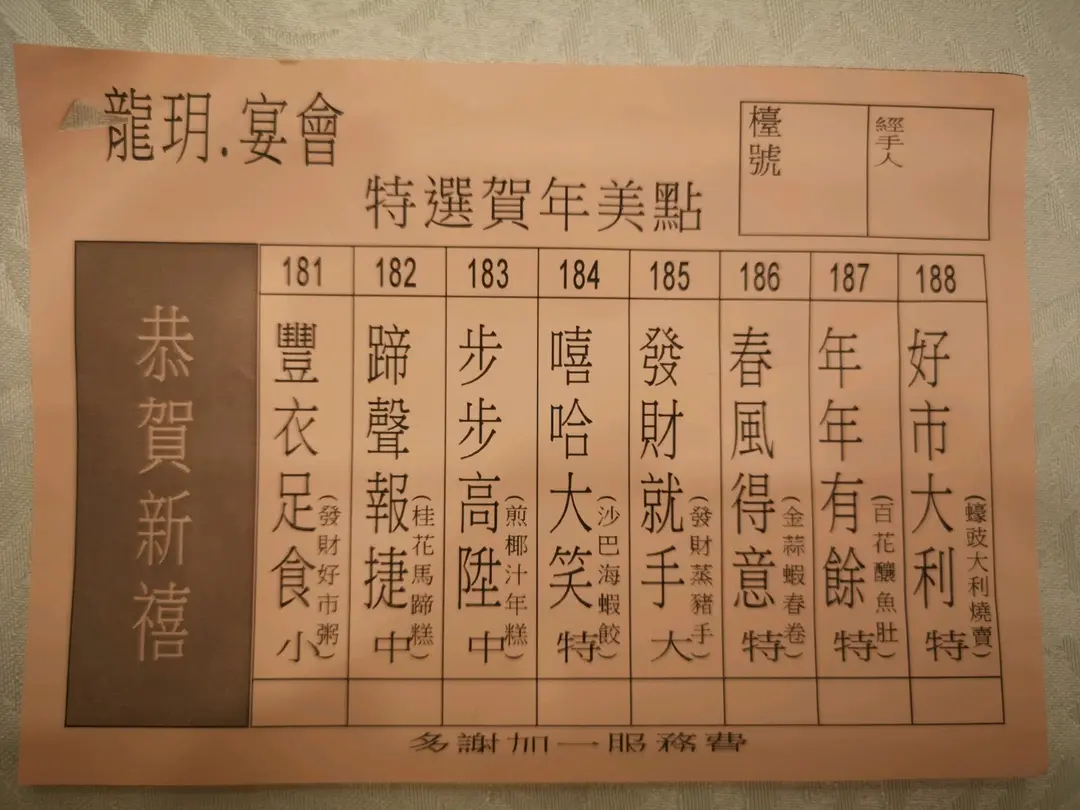 龍玥.宴會
檯號
經手人
特選賀年美點
恭賀新禧
181
豐衣足食 小
(發財好市粥)
182
蹄聲報捷 中
(桂花馬蹄糕)
183
步步高陞 中
(煎椰汁年糕)
184
嘻哈大笑 特
(沙巴海蝦餃)
185
發財就手 大
(發財蒸豬手)
186
春風得意 特
(金蒜蝦春卷)
187
年年有餘 特
(百花釀魚肚)
188
好市大利 特
(蠔豉大利燒賣)
多謝加一服務費